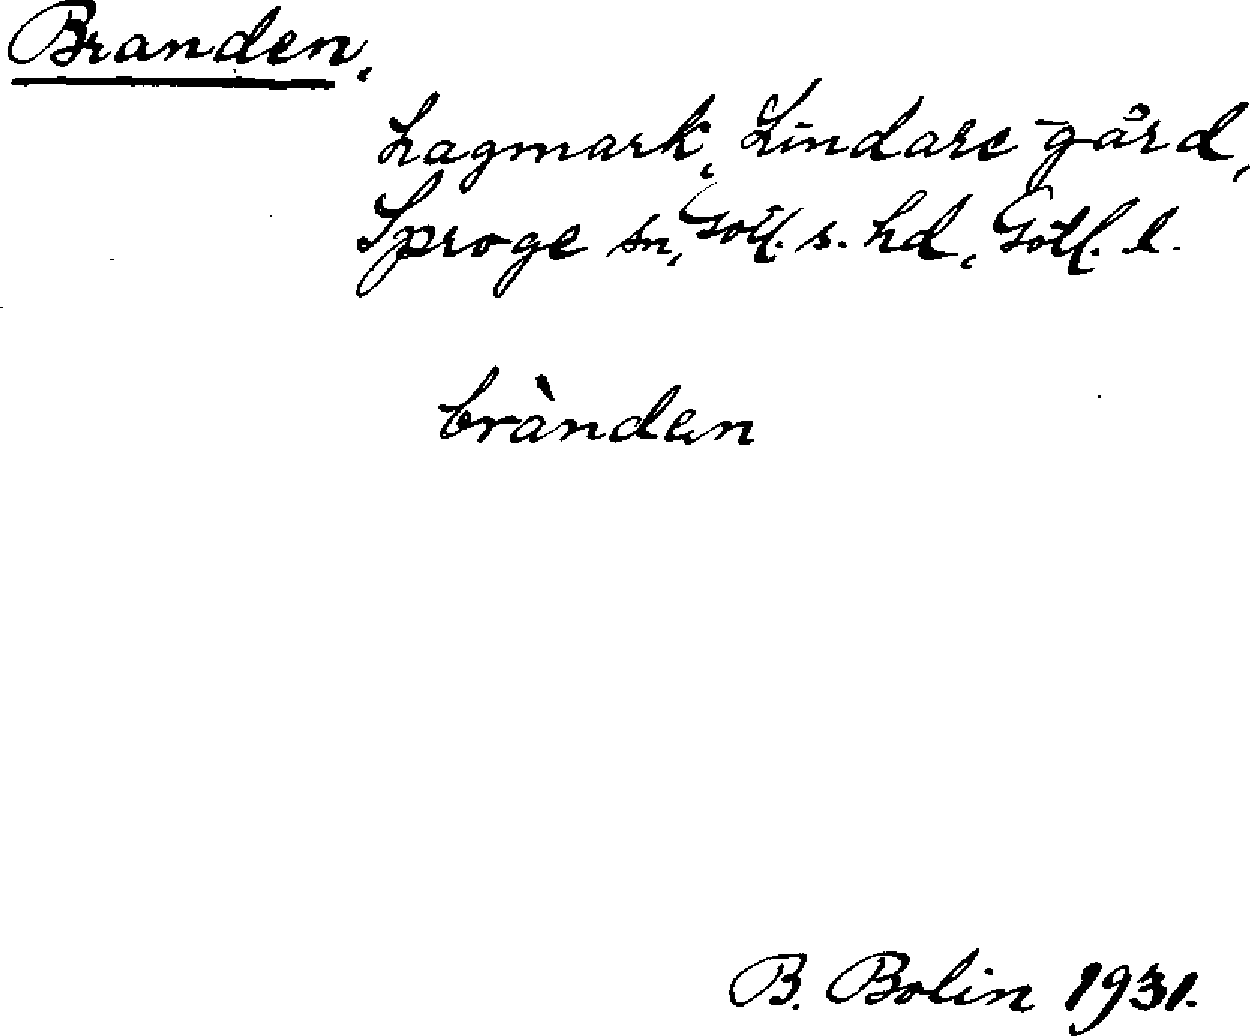 Branden.
Hagmark, Lindare gård,
Sproge sn, Gotl. s. hd, Gotl. l.
brànden
B. Bolin 1931.